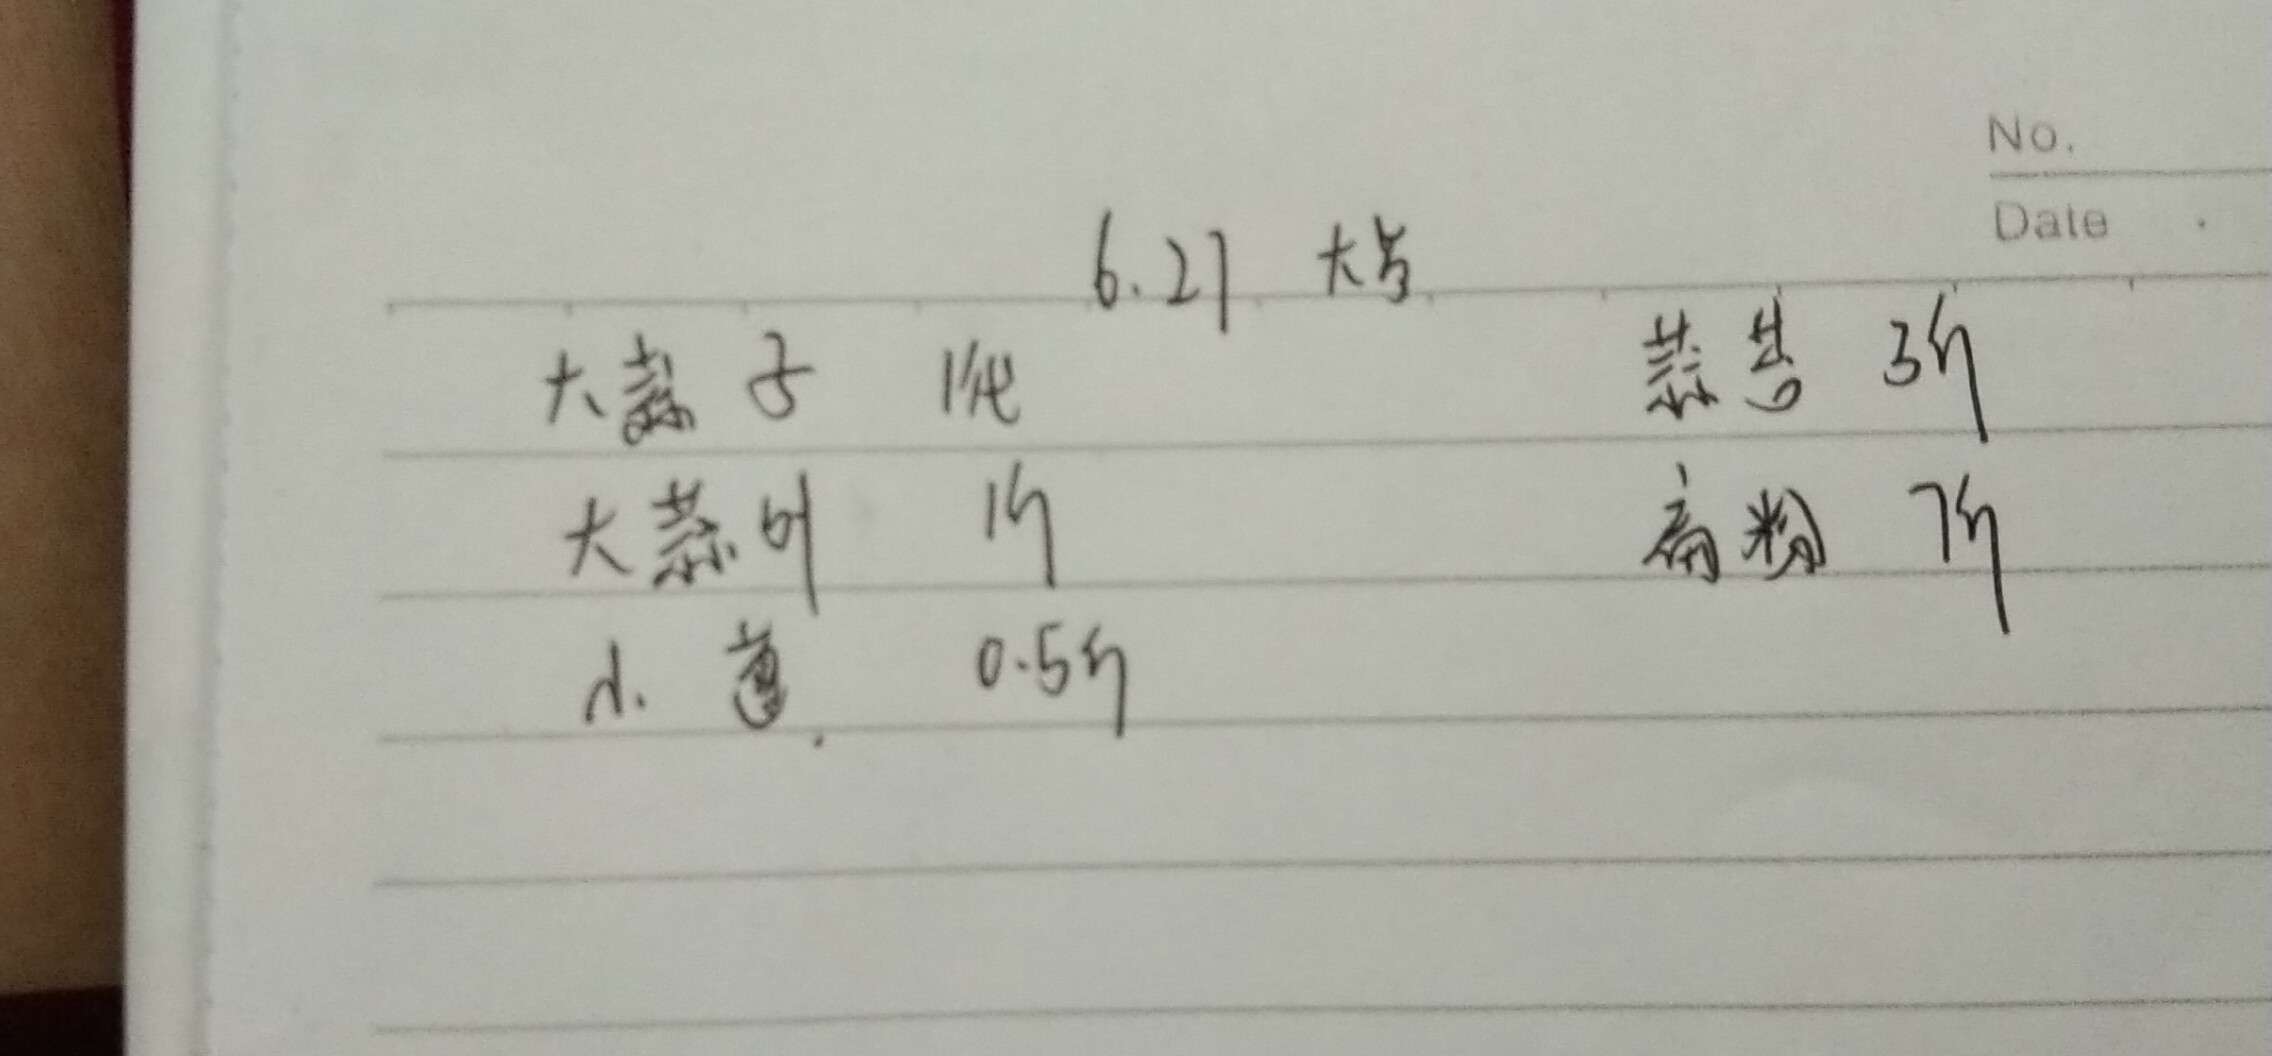 No.
Date
6.27 大号
大蒜子 1件
蒜苔 3斤
大蒜叶 1斤
扁粉 7斤
小葱 0.5斤